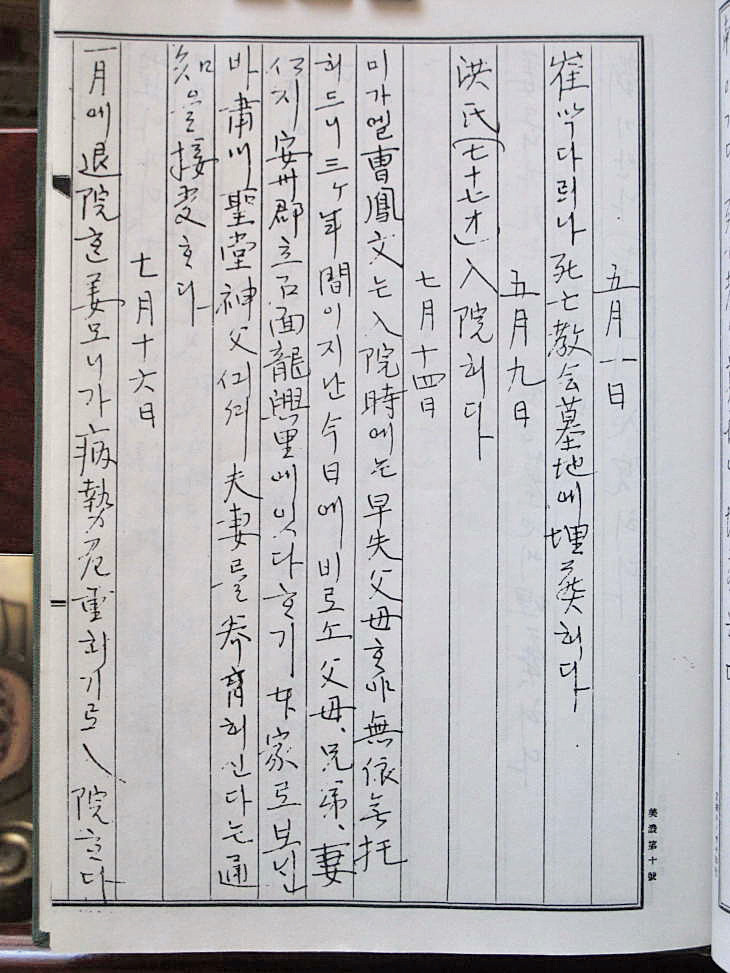 五月一日
崔막다리나死亡教会墓地에埋葬하다
五月九日
洪氏(七十七才)入院하다
七月十四日
미가엘曺鳳文는入院時에는早失父母하야無依無托
하드니三ケ年間이지난今日에비로소父母、兄弟、妻
安州郡立石面龍興里에잇다하기女家로보닌
바肅川聖堂神父 夫妻를養育하신다는通
知을接受하다
七月十六日
一月에退院한姜모니가病勢危重하기로入院하다
美濃第十號